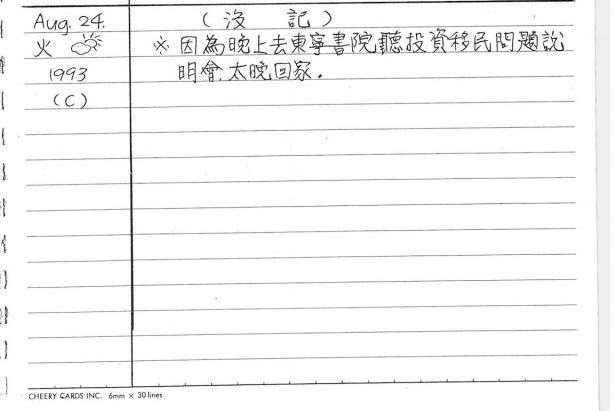 Aug. 24.
火
1993
(C)
(沒 記)
※ 因為晚上去東寧書院聽投資移民問題說
明會，太晚回家．
CHEERY CARDS INC. 6mm × 30 lines